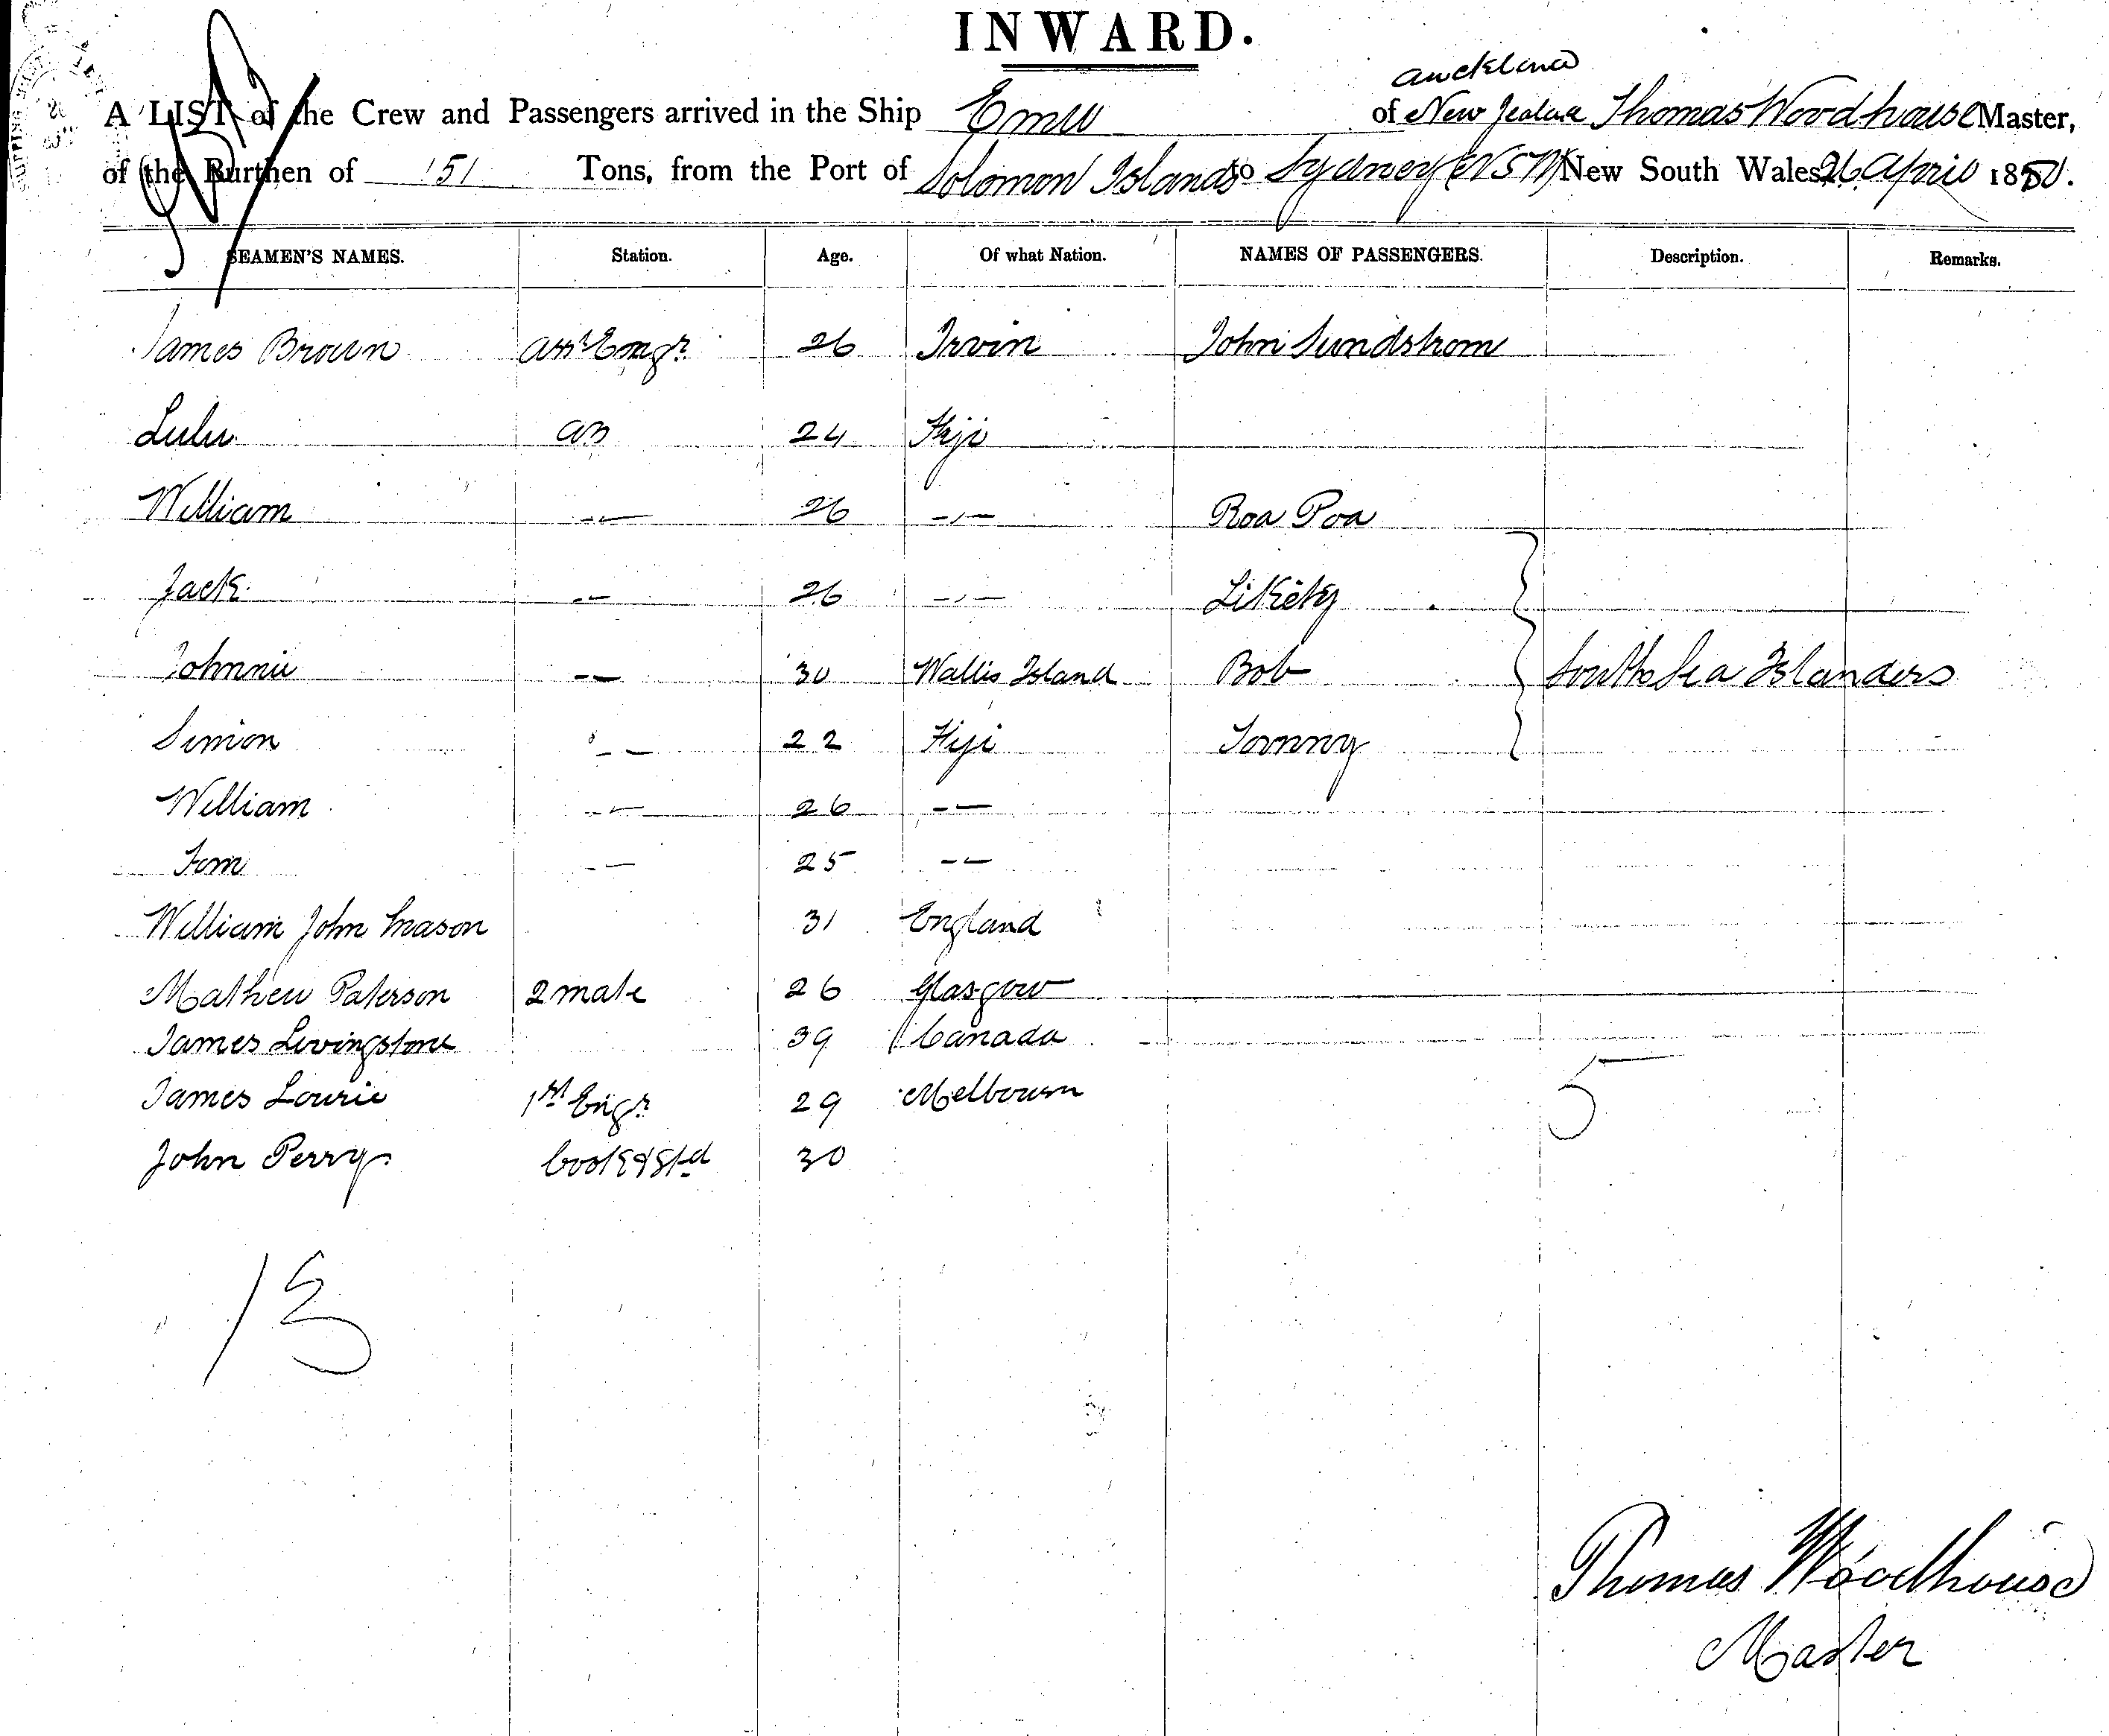 INWARD.
Auckland
A LIST of the Crew and Passengers arrived in the Ship Emu of New Zealand Thomas Woodhouse Master,
of the Burthen of 151 Tons, from the Port of Solomon Islands to Sydney (NSW) New South Wales, 26 April 1880.
SEAMEN'S NAMES. Station. Age. Of what Nation. NAMES OF PASSENGERS. Description. Remarks.
James Brown Asst Engr 26 Irvin John Sundstrom
Lulu AB 24 Fiji
William -- 26 -,- Roa Poa
Jack -- 26 -,- Likety
Johnnie -- 30 Wallis Island Bob South Sea Islanders
Simion -- 22 Fiji Tommy
William -- 26 --
Tom -- 25 --
William John Mason 31 England
Mathew Paterson 2 mate 26 Glasgow
James Livingstone 39 Canada
James Lourie 1st Engr 29 Melbourn
5
John Perry Cook & Std 30
13
Thomas Woodhouse
Master